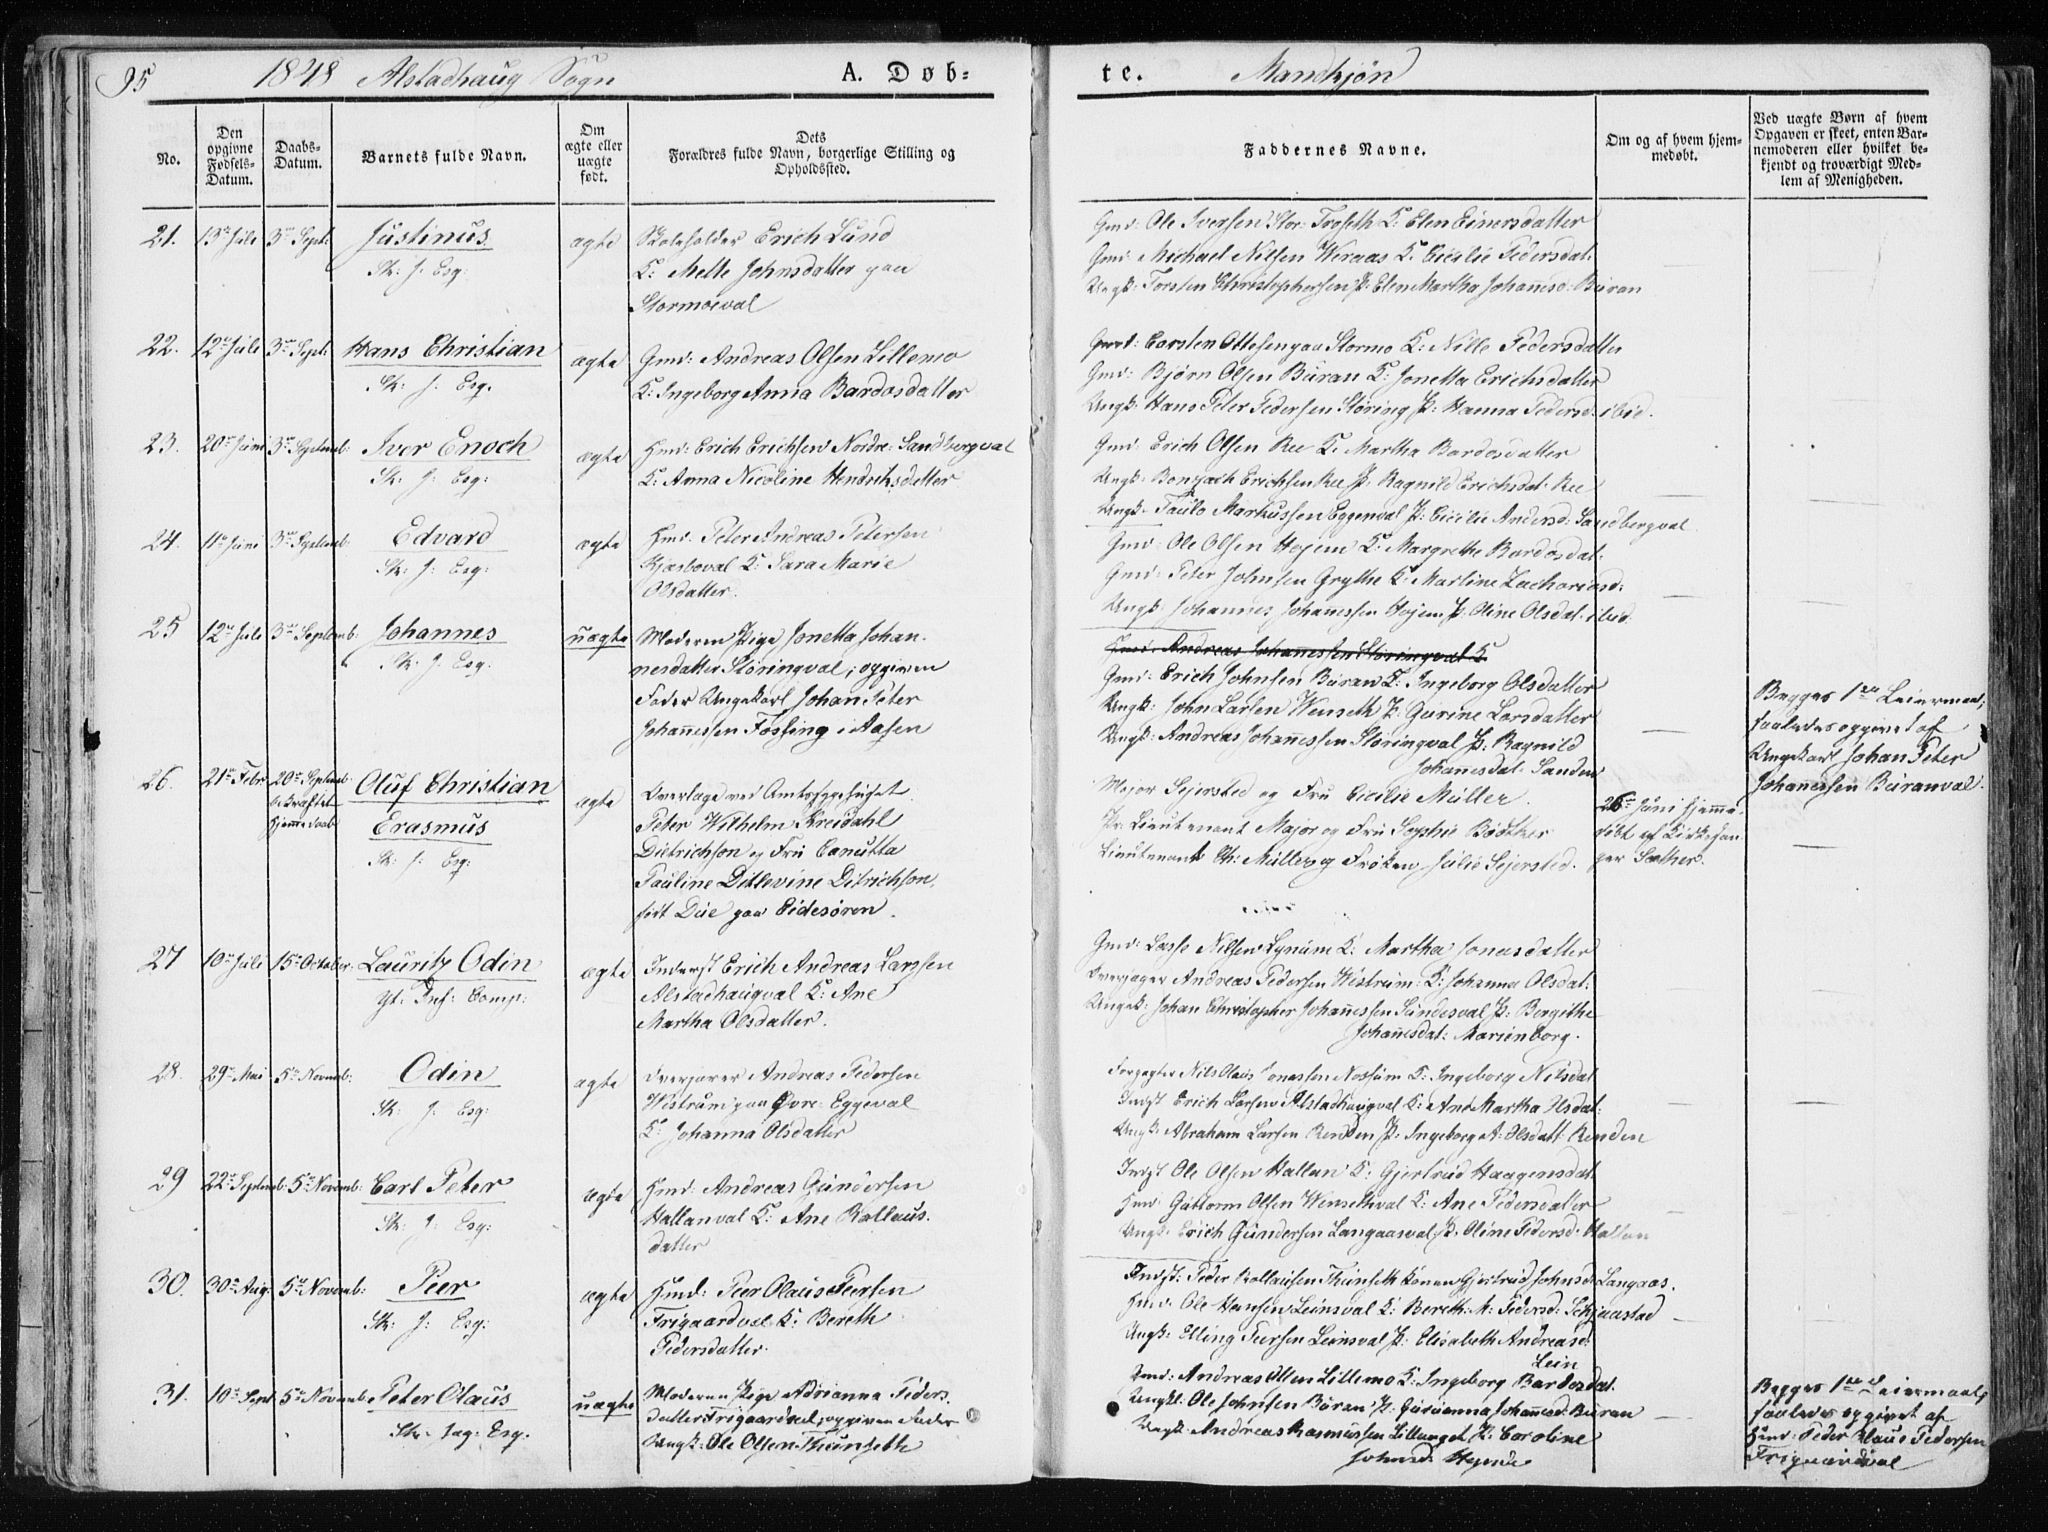 95 1848 Alstadhaug Sogn A. Døb- te. Mandkjøn
No.
Den opgivne Fødsels-Datum.
Daabs-Datum.
Barnets fulde Navn.
Om ægte eller uægte født.
Dets Forældres fulde Navn, borgerlige Stilling og Opholdssted.
Faddernes Navne.
Om og af hvem hjemmedøbt.
Ved uægte Børn af hvem Opgaven er skeet, enten Barnemoderen eller hvilket bekjendt og troværdigt Medlem af Menigheden.
21. 13de Juli 3de Sept: Justinus ægte
Sk: J: Esq:
Skoleholder Erich Lund
K: Mette Johnsdatter paa
Stormoeval
Gmd: Ole Iversen Stor: Troseth K: Elen Einersdatter
Gmd: Michael Nilsen Weraas K: Cicilie Pedersdat.
Ungk: Torsten Christophersen P: Elen Martha Johanesd: Büran
22. 12te Juli 3de Sept: Hans Christian ægte
Sk: J: Esq.
Gmd: Andreas Olsen Lillemo
K: Ingeborg Anna Bardosdatter
Gmd: Carsten Ottesen paa Stormo K: Nille Pedersdatter
Gmd: Bjørn Olsen Büran K: Jonetta Erichsdatter
Ungk: Hans Peter Pedersen Støring P: Hanna Pedersd. ibid.
23. 20de Juni 3de Septemb: Iver Enoch ægte
Sk: J: Esq:
Hmd: Erich Erichsen Nordre: Sandbergval
K: Anna Nicoline Hendriksdatter
Gmd: Erich Olsen Ree K: Martha Bardosdatter
Ungk: Bonsach Erichsen Ree P: Ragnild Erichsdat: Ree
Ungk: Paulo Markussen Eggenval P: Cicilie Andersd: Sandbergval
24. 11te Juni 3de Septemb: Edvard ægte
Sk: J: Esq:
Hmd: Peter Andreas Petersen
Kjæsboval K: Sara Marie
Olsdatter.
Gmd: Ole Olsen Hojem K: Margrethe Bardosdat.
Gmd: Peter Johnsen Grythe K: Martine Zachariasd:
Ungk: Johannes Johanessen Hojem P: Oline Olsdat: ibid:
25 12te Juli 3de Septemb: Johannes uægte
Sk: J: Esq:
Moderen Pige Jonetta Johan-
nesdatter Støringval, opgiven
Fader Ungekarl Johan Peter
Johanessen Fossing i Aasen
Hmd: Andreas Johanessen Støringval K
Gmd: Erich Johnsen Büran K: Ingeborg Olsdatter
Ungk: John Larsen Wenseth P: Gurine Larsdatter
Ungk: Andreas Johanessen Støringval P: Ragnild
Johanesdat: Sanden
Begges 1ste Leiermaal,
saaledes opgivet af
Ungekarl Johan Peter
Johanessen Büranval.
26. 21de Febr. 20de Septemb: Oluf Christian Erasmus ægte
bekræftet
Hjemmedaab
Sk: J: Esq:
Overlæge ved Amtssygehuset
Peter Wilhelm Kreidahl
Dietrichson og Fru Canutta
Pauline Ditlevine Ditrichson,
født Due paa Eidesøren.
Major Sejersted og Fru Cicilie Müller.
Pr: Lieutenant Major og Fru Sophie Bødtker
Lieutenant Ch: Müller og Frøken Julie Sejersted.
26de Juni hjemme-
døbt af Kirkesan-
ger Sæther.
27 10de Juli 15de October: Lauritz Odin ægte
Yt: Inf: Comp:
Inderst Erich Andreas Larssen
Alstadhaugval K: Ane
Martha Olsdatter.
Gmd: Lasse Nilsen Lynüm K: Martha Jonasdatter
Overjæger Andreas Pedersen Wistrüm: K: Johanna Olsdat:
Ungek: Johan Christopher Johanessen Sundesval P: Bergithe
Johanesdat: Marienborg.
28. 29de Mai 5te Novemb: Odin ægte
Sk: J: Esq:
Overjæger Andreas Pedersen
Wistrüm paa Øvre: Eggeval
K: Johanna Olsdatter
Forpagter Nils Olaus Jonassen Nossüm K: Ingeborg Nilsdat
Indst Erich Larsen Alstadhaugval K: Ane Martha Olsdat:
Ungk: Abraham Larsen Renden P: Ingeborg A: Olsdatt: Renden
29 22de Septemb: 5te Novemb: Carl Peter ægte
Sk: J: Esq:
Hmd: Andreas Gundersen
Hallanval K: Ane Rollaus-
datter
Indst Ole Olsen Hallan K: Gjertrud Haagensdat.
Hmd: Guttorm Olsen Wensethval K: Ane Pedersdatter
Ungk: Erich Gundersen Langaasval P: Oline Pedersd: Hallan
30. 30te Aug: 5te Novemb: Peer ægte
Sk: J: Esq:
Hmd: Peer Olaus Peersen
Frigaardval K: Bereth
Pedersdatter.
Indst: Peder Rollaüsen Thünseth Konen Gjertrud Johnsd: Langaas.
Hmd: Ole Hansen Leinsval K: Bereth: M: Pedersd: Schjærstad
Ungk: Elling Peersen Leinsval P: Elisabeth Andreasd:
Lein
31. 10de Sept: 5te Novemb: Peter Olaus uægte
Sk: Jæg: Esq.
Moderen Pige Adrianna Peders-
datter Frigaardval, opgiven Fader
Ungk: Ole Olsen Thünseth
Gmd: Andreas Olsen Lillemo K: Ingeborg Bardosdat.
Ungk: Ole Johnsen Büran P: Susanna Johanesd: Büran
Ungk: Andreas Rasmussen P: Caroline
Johnsd:
Begges 1ste Leiermaal,
saaledes opgivet af
Hmd: Peder Olaus Pedersen
Frigaardval